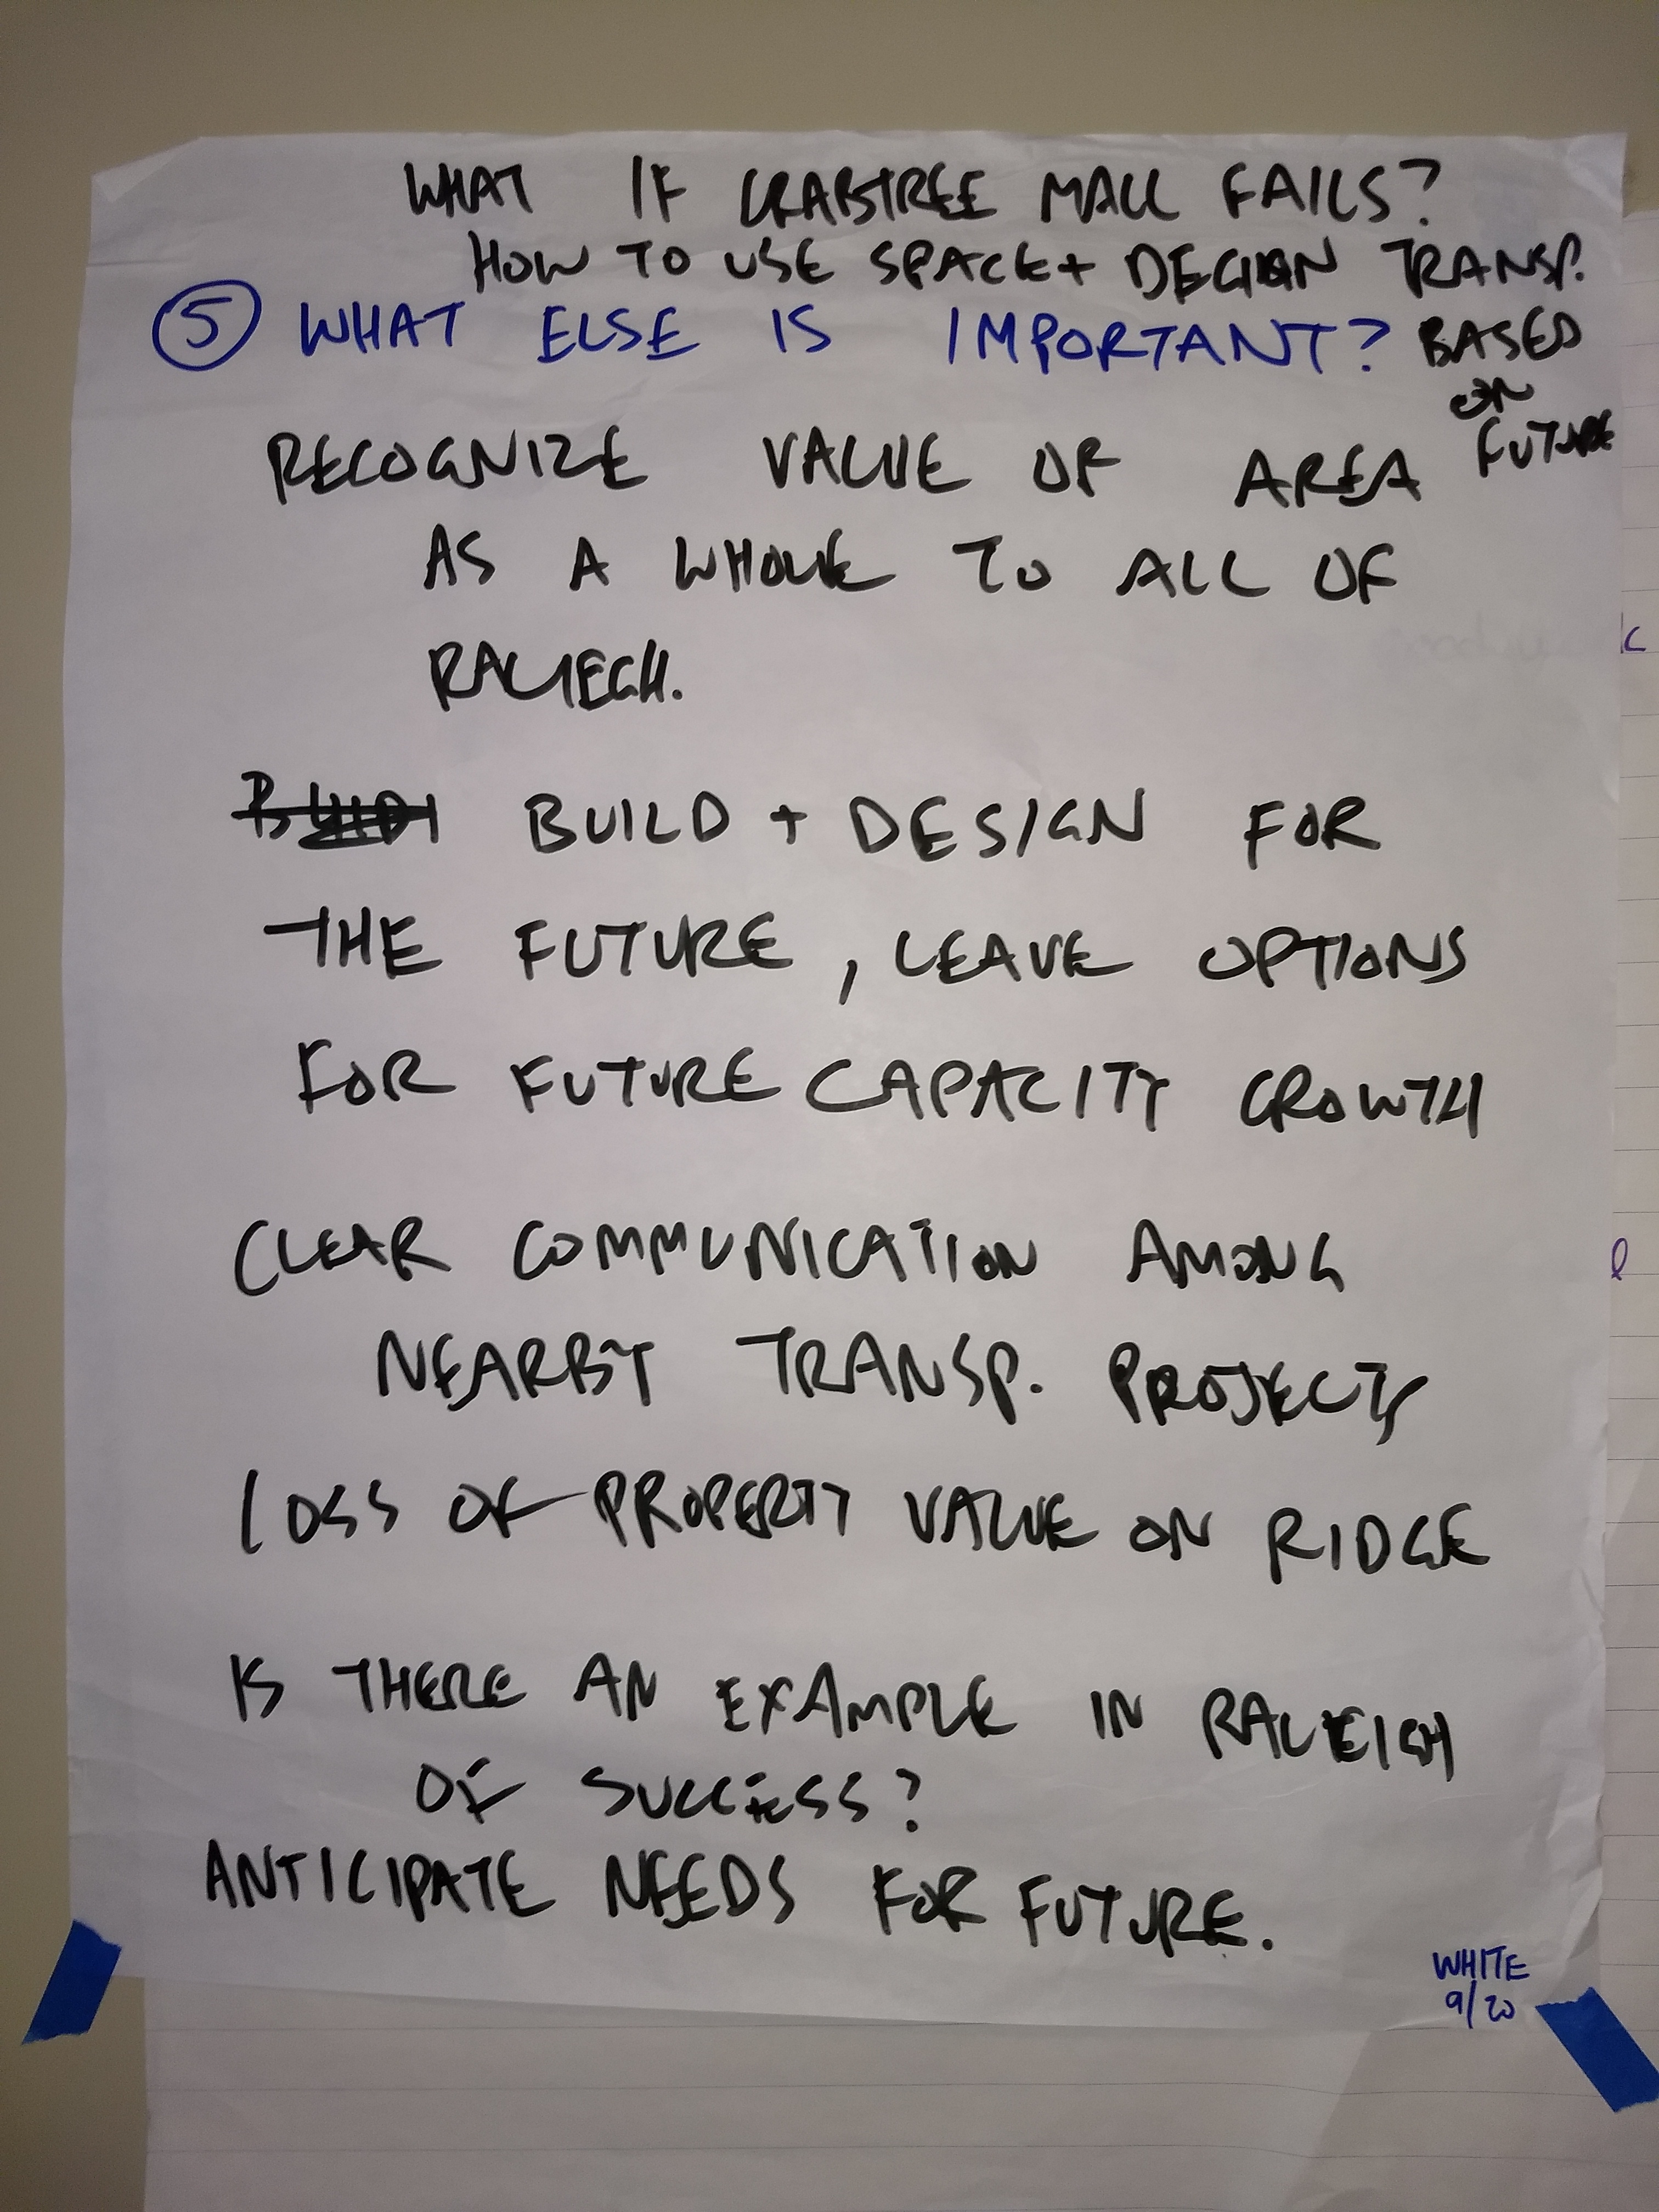 WHAT IF CRABTREE MALL FAILS?
HOW TO USE SPACE + DESIGN TRANSP.
BASED
ON
FUTURE
⑤ WHAT ELSE IS IMPORTANT?
RECOGNIZE VALUE OF AREA
AS A WHOLE TO ALL OF
RALIEGH.
BUILD + DESIGN FOR
THE FUTURE, LEAVE OPTIONS
FOR FUTURE CAPACITY GROWTH
CLEAR COMMUNICATION AMONG
NEARBY TRANSP. PROJECTS
LOSS OF PROPERTY VALUE ON RIDGE
IS THERE AN EXAMPLE IN RALEIGH
OF SUCCESS?
ANTICIPATE NEEDS FOR FUTURE.
WHITE
9/20